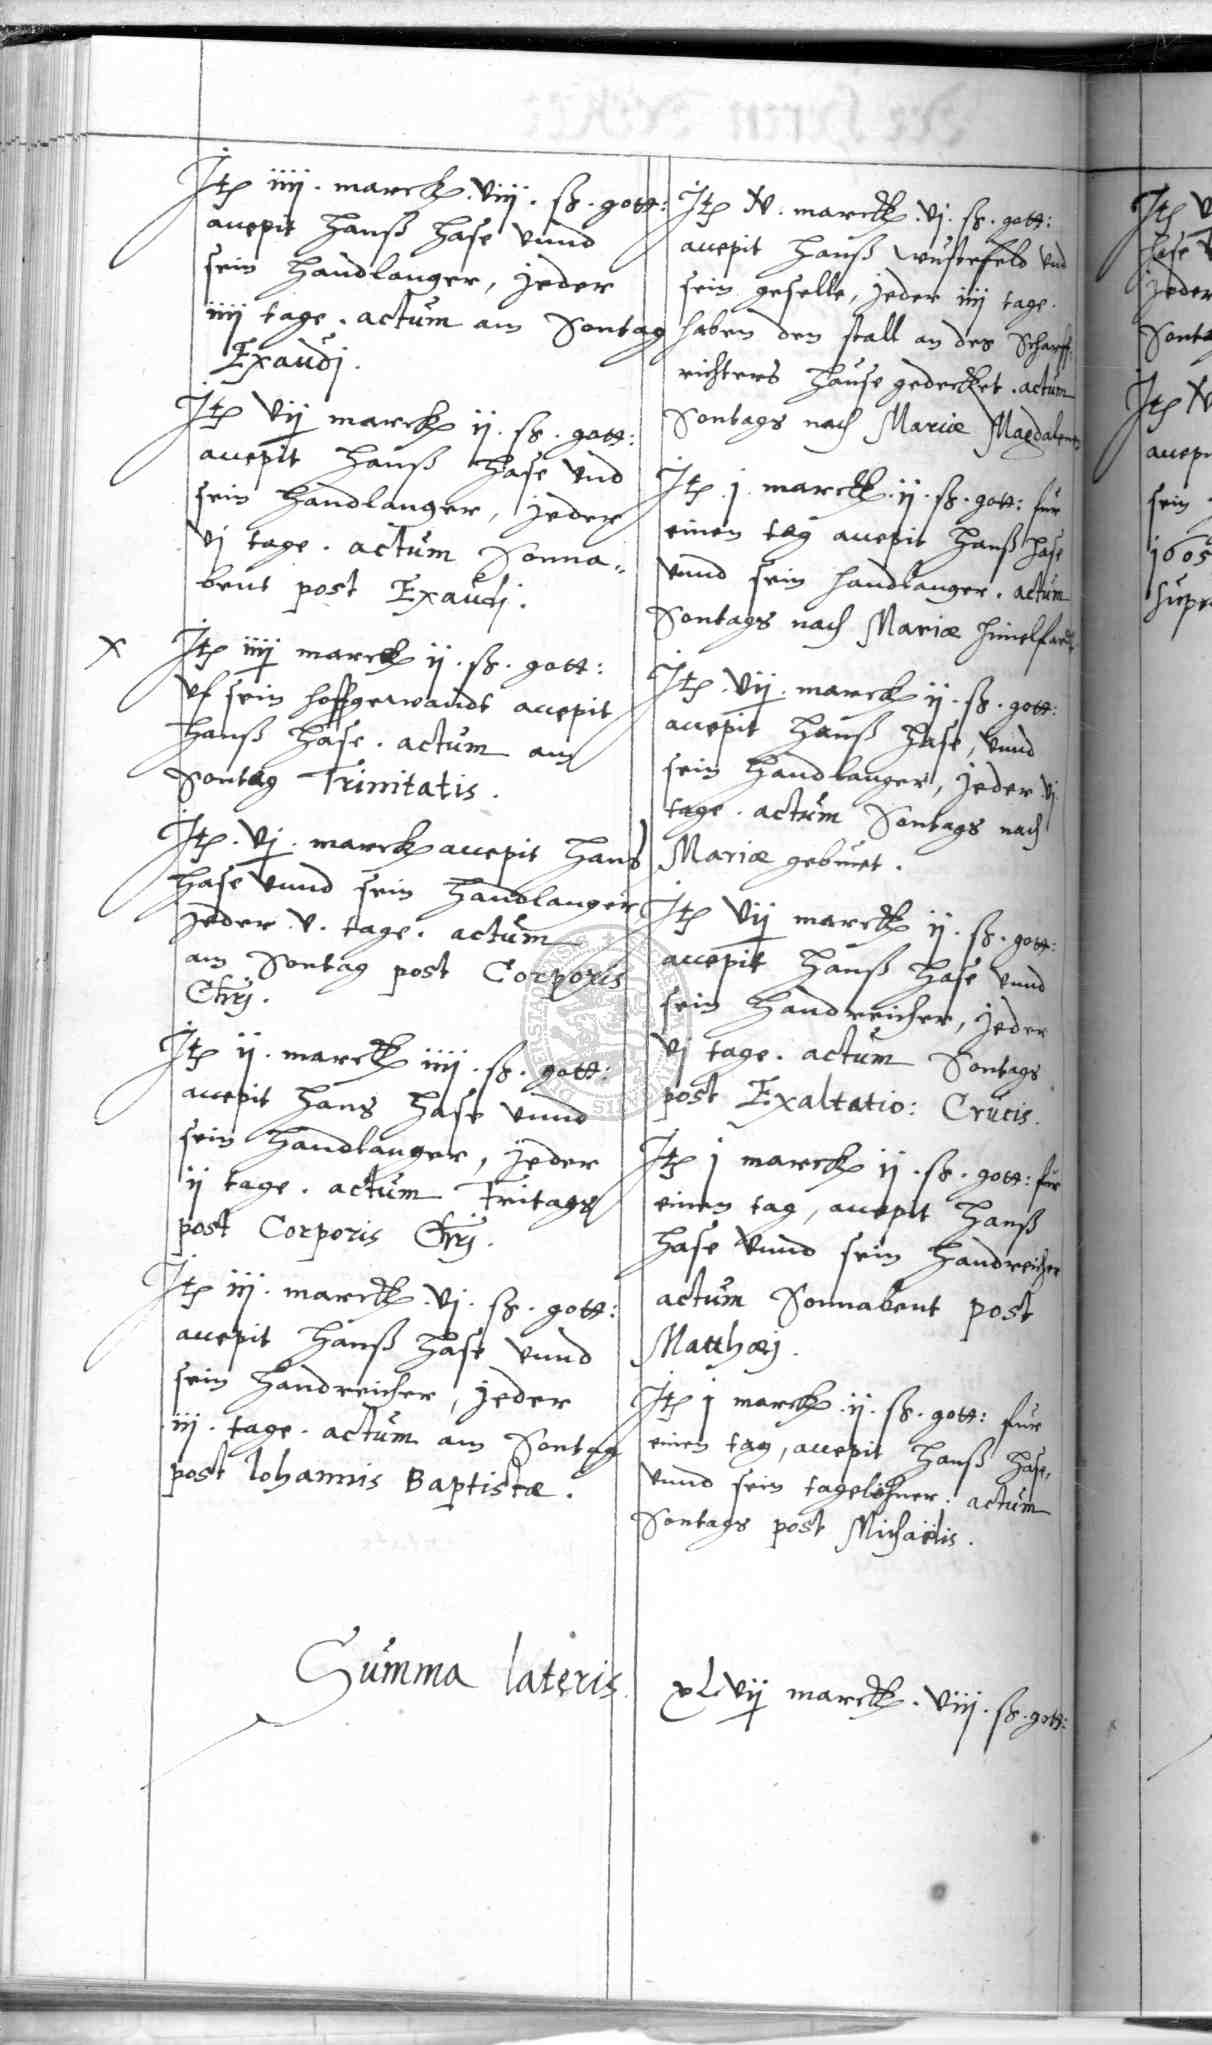 Itē iiij. marck. viij. ß. gott:
accepit Hanß Hase vnnd
sein Handlanger, jeder
iiij tage. actum am Sontag
Exaudj.
Itē vij marck ij. ß. gott:
accepit Hanß Hase vnd
sein Handlanger, jeder
vj tage. actum Sonna=
bent post Exaudj.
x Itē iiij marck ij. ß. gott:
vf sein hoffgewandt accepit
Hanß Hase. actum am
Sontag Trinitatis.
Itē. vj. marck accepit Hans
Hase vnnd sein Handlanger
jeder v. tage. actum
am Sontag post Corporis
Chrj.
Itē ij. marck iiij. ß. gott:
accepit Hans Hase vnnd
sein Handlanger, jeder
ij tage. actum Fritags
post Corporis Chrj.
Itē iij. marck. vj. ß. gott:
accepit Hanß Hase vnnd
sein Handreicher, jeder
iij. tage. actum am Sontag
post Iohannis Baptistæ.
Itē iv. marck. vj. ß. gott:
accepit Hanß Wusterfeld vnd
sein geselle, jeder iiij tage.
haben den stall an des Scharff
richters Hause gedecket. actum
Sontags nach Mariæ Magdalenes
Itē. j. marck. ij. ß. gott: fur
einen tag accepit Hanß Hase
vnnd sein handlanger. actum
Sontags nach Mariæ himelfardt
Itē. vij. marck ij. ß. gott:
accepit Hanß Hase, vnnd
sein Handlanger, jeder vj
tage. actum Sontags nach
Mariæ geburt.
Itē vij marck ij. ß. gott:
accepit Hanß Hase vnnd
sein Handreicher, jeder
vj tage. actum Sontags
post Exaltatio: Crucis.
Itē j marck ij. ß. gott: fur
einen tag, accepit Hanß
Hase vnnd sein Handreicher
actum Sonnabent post
Matthæj.
Itē j marck. ij. ß. gott: fur
einen tag, accepit Hanß Hase,
vnnd sein tagelöhner. actum
Sontags post Michaëlis.
Summa lateris. xLvij marck. viij. ß. gott:
Itē
Hase
jeder
Sonta
Itē
accepi
sein
1605
supr